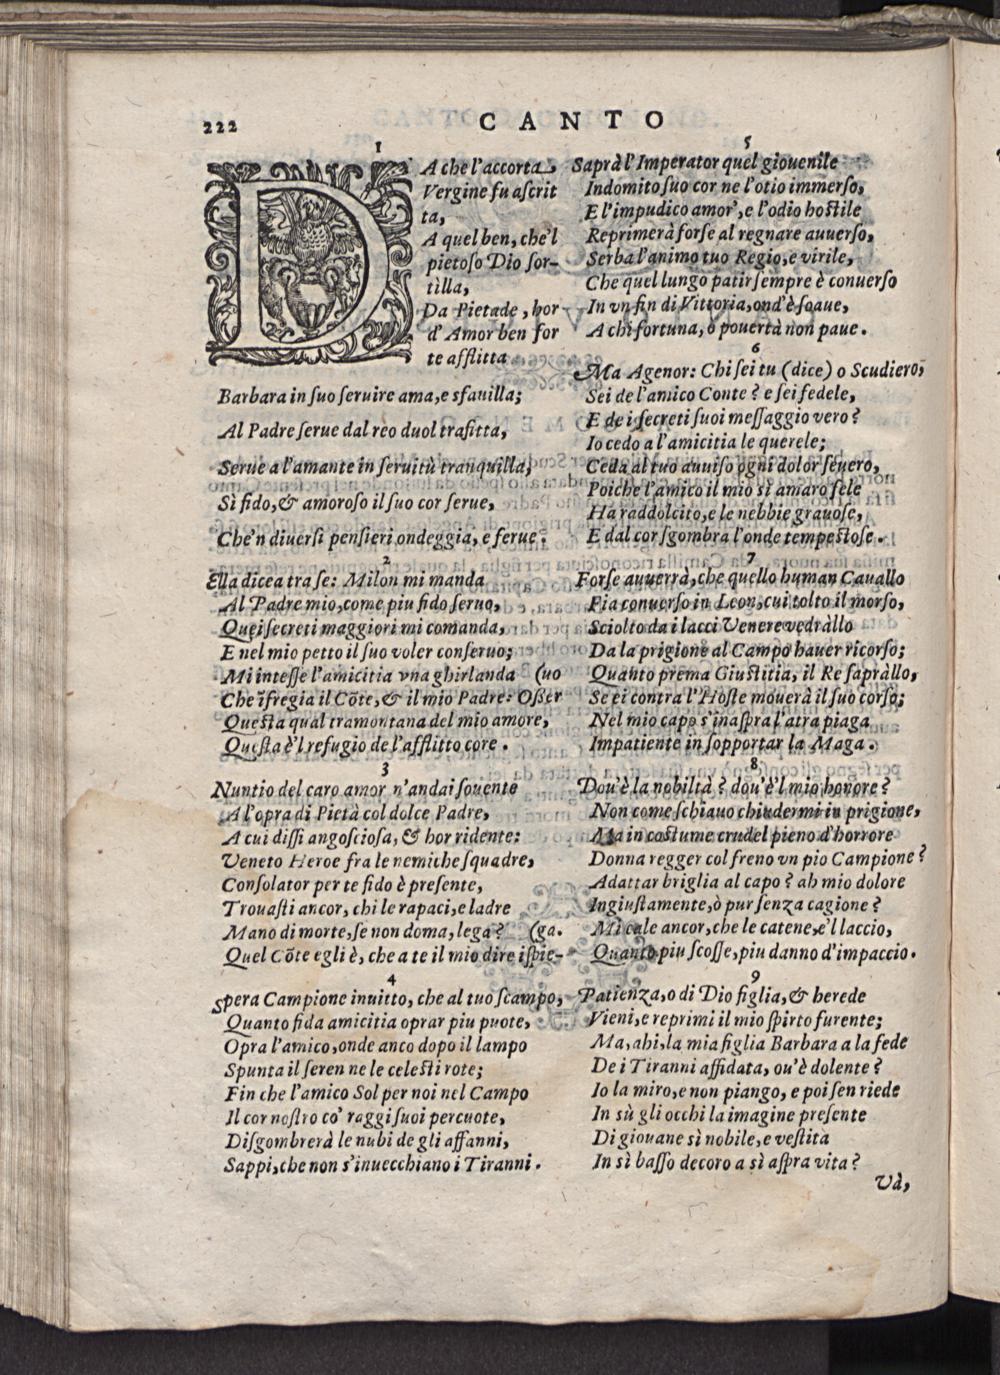 222
CANTO
1
DA che l'accorta
Vergine fu aſcrit
ta,
A quel ben, che'l
pietoſo Dio ſor-
tilla,
Da Pietade, hor
d'Amor ben for
te afflitta
Barbara in ſuo ſeruire ama, e sfauilla;
Al Padre ſerue dal reo duol trafitta,
Serue a l'amante in ſeruitù tranquilla;
Sì fido, & amoroſo il ſuo cor ſerue,
Che'n diuerſi penſieri ondeggia, e ferue.
2
Ella dicea tra ſe: Milon mi manda
Al Padre mio, come piu fido ſeruo,
Quei ſecreti maggiori mi comanda,
E nel mio petto il ſuo voler conſeruo;
Mi inteſſe l'amicitia vna ghirlanda (uo
Che ĩfregia il Cõte, & il mio Padre: Oſſer
Queſta qual tramontana del mio amore,
Queſta è'l refugio de l'afflitto core.
3
Nuntio del caro amor n'andai ſouente
A l'opra di Pietà col dolce Padre,
A cui diſſi angoſcioſa, & hor ridente:
Veneto Heroe fra le nemiche ſquadre,
Conſolator per te fido è preſente,
Trouaſti ancor, chi le rapaci, e ladre
Mano di morte, ſe non doma, lega? (ga.
Quel Cõte egli è, che a te il mio dire iſpie-
4
Spera Campione inuitto, che al tuo ſcampo,
Quanto fida amicitia oprar piu puote,
Opra l'amico, onde anco dopo il lampo
Spunta il ſeren ne le celeſti rote;
Fin che l'amico Sol per noi nel Campo
Il cor noſtro co' raggi ſuoi percuote,
Diſgombrerà le nubi de gli affanni,
Sappi, che non s'inuecchiano i Tiranni.
5
Saprà l'Imperator quel giouenile
Indomito ſuo cor ne l'otio immerſo,
E l'impudico amor', e l'odio hoſtile
Reprimerà forſe al regnare auuerſo,
Serba l'animo tuo Regio, e virile,
Che quel lungo patir ſempre è conuerſo
In vn fin di Vittoria, ond'è ſoaue,
A chi fortuna, o pouertà non paue.
6
Ma Agenor: Chi ſei tu (dice) o Scudiero,
Sei de l'amico Conte? e ſei fedele,
E de i ſecreti ſuoi meſſaggio vero?
Io cedo a l'amicitia le querele;
Ceda al tuo auuiſo ogni dolor ſeuero,
Poiche l'amico il mio sì amaro fele
Ha raddolcito, e le nebbie grauoſe,
E dal cor ſgombra l'onde tempeſtoſe.
7
Forſe auuerrà, che quello human Cauallo
Fia conuerſo in Leon, cui tolto il morſo,
Sciolto da i lacci Venere vedràllo
Da la prigione al Campo hauer ricorſo;
Quanto prema Giuſtitia, il Re ſapràllo,
Se ei contra l'Hoſte mouerà il ſuo corſo;
Nel mio capo s'inaſpra l'atra piaga
Impatiente in ſopportar la Maga.
8
Dou'è la nobiltà? dou'è'l mio honore?
Non come ſchiauo chiudermi in prigione,
Ma in coſtume crudel pieno d'horrore
Donna regger col freno vn pio Campione?
Adattar briglia al capo? ah mio dolore
Ingiuſtamente, ò pur ſenza cagione?
Mi cale ancor, che le catene, e'l laccio,
Quanto piu ſcoſſe, piu danno d'impaccio.
9
Patienza, o di Dio figlia, & herede
Vieni, e reprimi il mio ſpirto furente;
Ma, ahi, la mia figlia Barbara a la fede
De i Tiranni affidata, ou'è dolente?
Io la miro, e non piango, e poi ſen riede
In sù gli occhi la imagine preſente
Di giouane sì nobile, e veſtita
In sì baſſo decoro a sì aſpra vita?
Và,